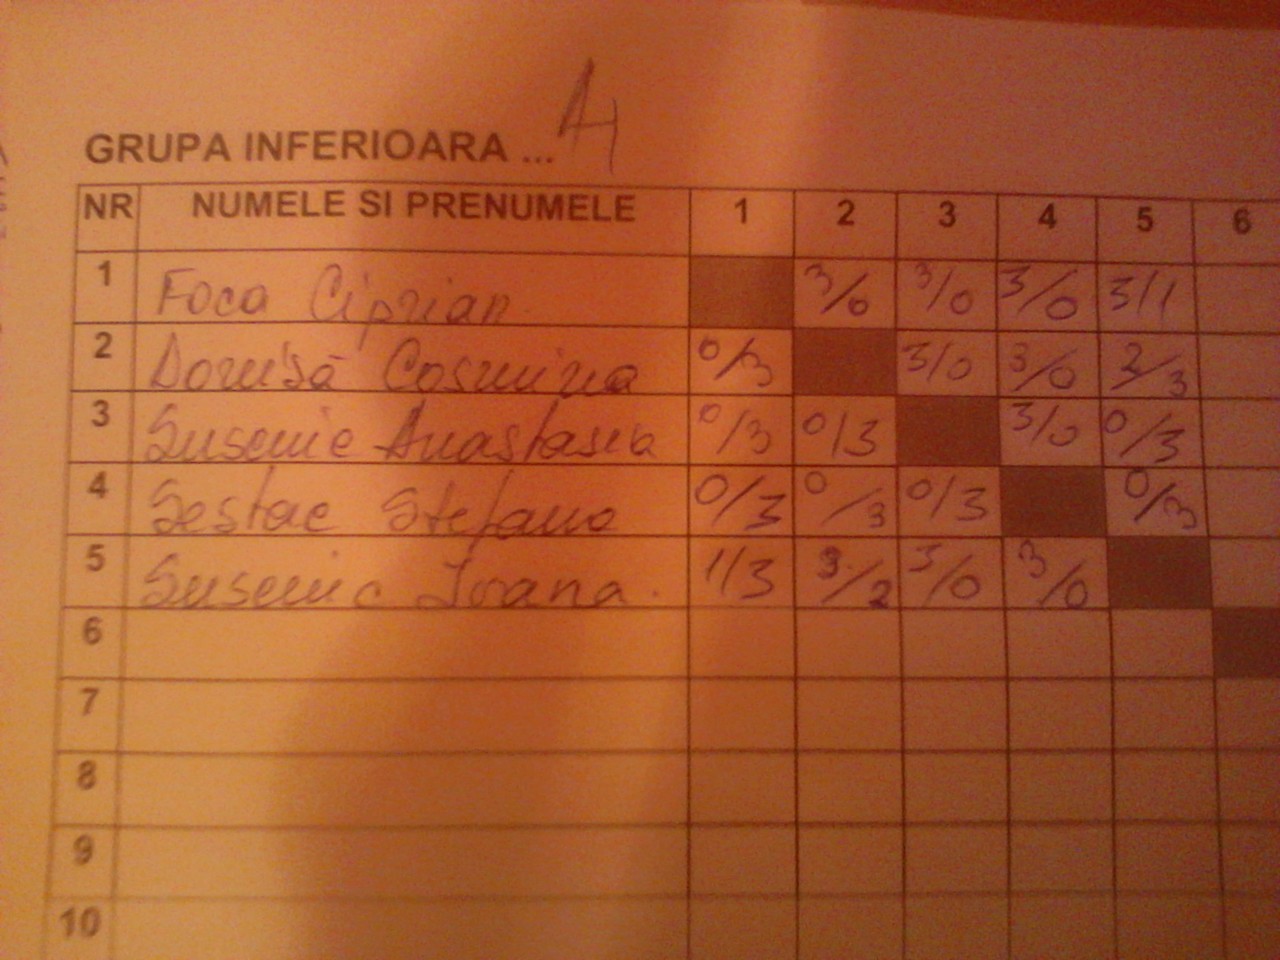 GRUPA INFERIOARA ... A
NR NUMELE SI PRENUMELE 1 2 3 4 5 6
1 Foca Ciprian 3/0 3/0 3/0 3/1
2 Cosmina 0/3 3/0 3/0 2/3
3 Susenic Anastasia 0/3 0/3 3/0 0/3
4 Sestac Stefana 0/3 0/3 0/3 0/3
5 Susenic Ioana 1/3 3/2 3/0 3/0
6
7
8
9
10